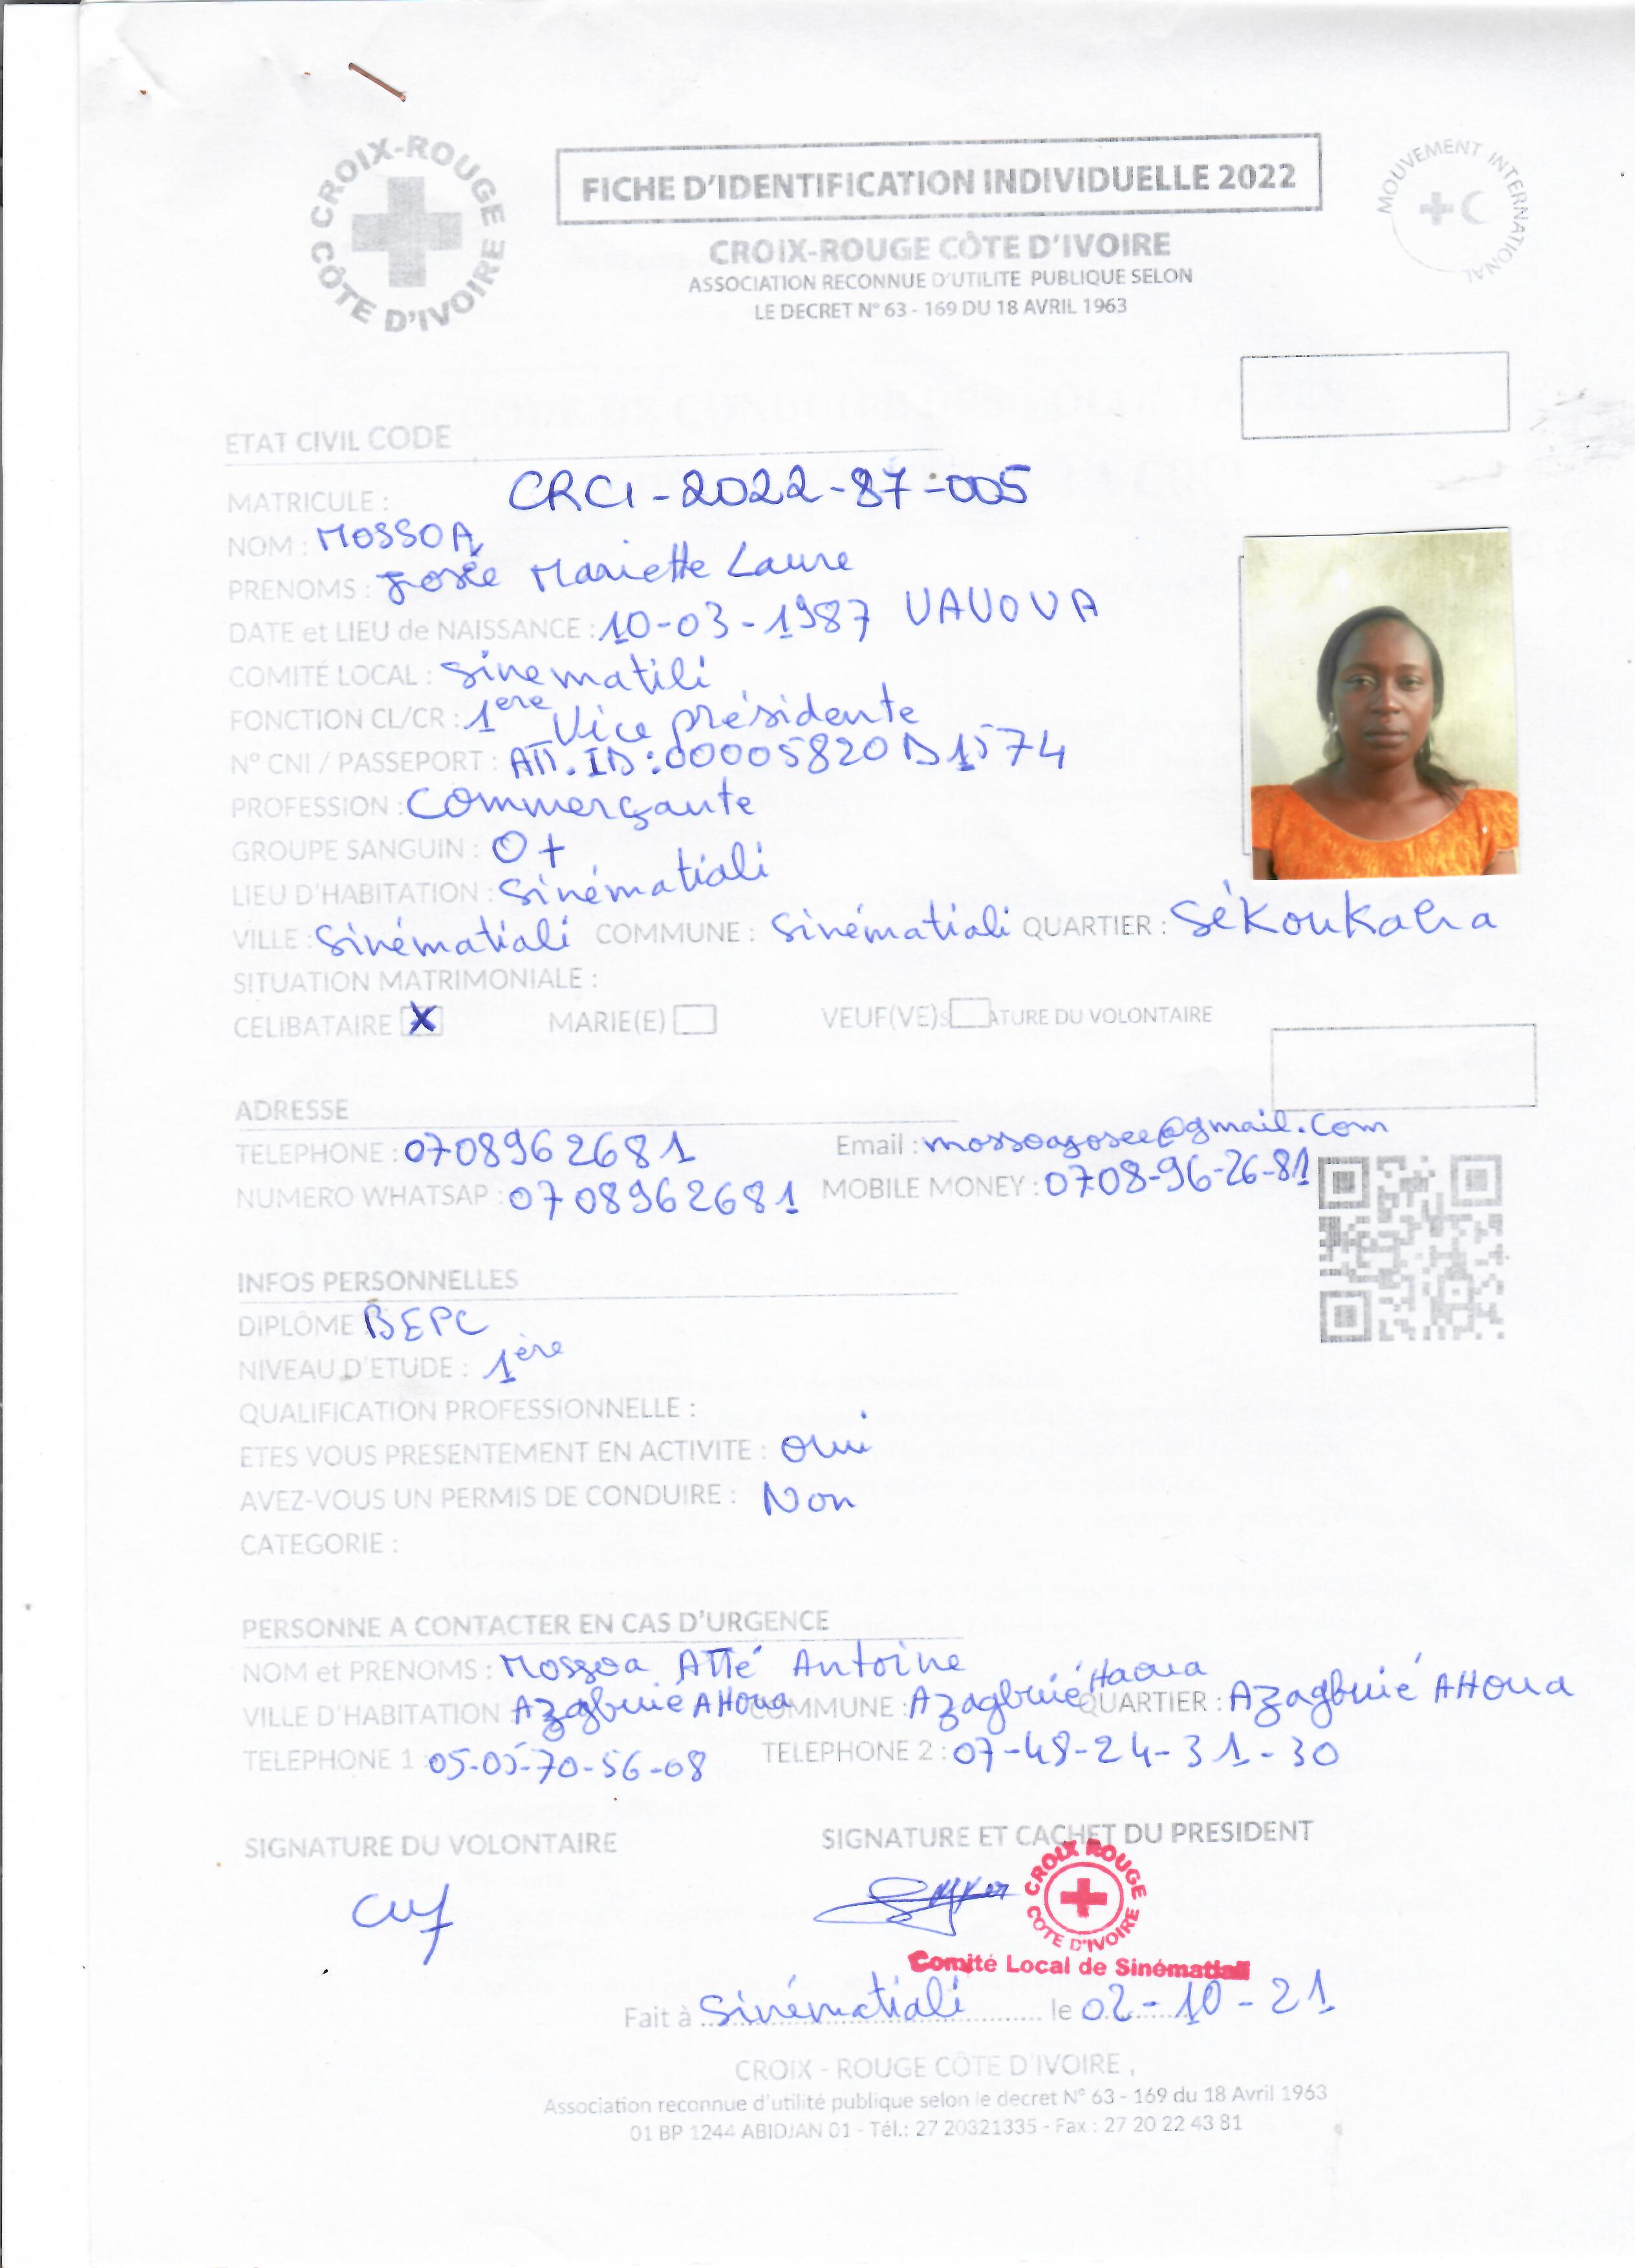 CROIX-ROUGE CÔTE D'IVOIRE
FICHE D'IDENTIFICATION INDIVIDUELLE 2022
MOUVEMENT INTERNATIONAL
CROIX-ROUGE CÔTE D'IVOIRE
ASSOCIATION RECONNUE D'UTILITE PUBLIQUE SELON
LE DECRET N° 63 - 169 DU 18 AVRIL 1963
ETAT CIVIL CODE
MATRICULE : CRCI-2022-87-005
NOM : MOSSOA
PRENOMS : Josée Mariette Laure
DATE et LIEU de NAISSANCE : 10-03-1987 VAVOUA
COMITÉ LOCAL : Sinematili
FONCTION CL/CR : 1ere Vice présidente
N° CNI / PASSEPORT : ATT. ID : 00005820D1574
PROFESSION : Commerçante
GROUPE SANGUIN : O+
LIEU D'HABITATION : Sinématiali
VILLE : Sinématiali COMMUNE : Sinématiali QUARTIER : Sékoukaha
SITUATION MATRIMONIALE :
CELIBATAIRE X MARIE(E) VEUF(VE) ATURE DU VOLONTAIRE
ADRESSE
TELEPHONE : 0708962681 Email : mossoajosee@gmail.com
NUMERO WHATSAP : 0708962681 MOBILE MONEY : 0708-96-26-81
INFOS PERSONNELLES
DIPLÔME BEPC
NIVEAU D'ETUDE : 1ère
QUALIFICATION PROFESSIONNELLE :
ETES VOUS PRESENTEMENT EN ACTIVITE : oui
AVEZ-VOUS UN PERMIS DE CONDUIRE : Non
CATEGORIE :
PERSONNE A CONTACTER EN CAS D'URGENCE
NOM et PRENOMS : Mossoa Atté Antoine
VILLE D'HABITATION Azagbuié AHoua COMMUNE : Azagbuié Haoua QUARTIER : Azagbuié AHoua
TELEPHONE 1 : 05-05-70-56-08 TELEPHONE 2 : 07-48-24-31-30
SIGNATURE DU VOLONTAIRE SIGNATURE ET CACHET DU PRESIDENT
CROIX ROUGE COTE D'IVOIRE
Comité Local de Sinématiali
Fait à Sinématiali le 02-10-21
CROIX - ROUGE CÔTE D'IVOIRE ,
Association reconnue d'utilité publique selon le decret N° 63 - 169 du 18 Avril 1963
01 BP 1244 ABIDJAN 01 - Tél.: 27 20321335 - Fax : 27 20 22 43 81